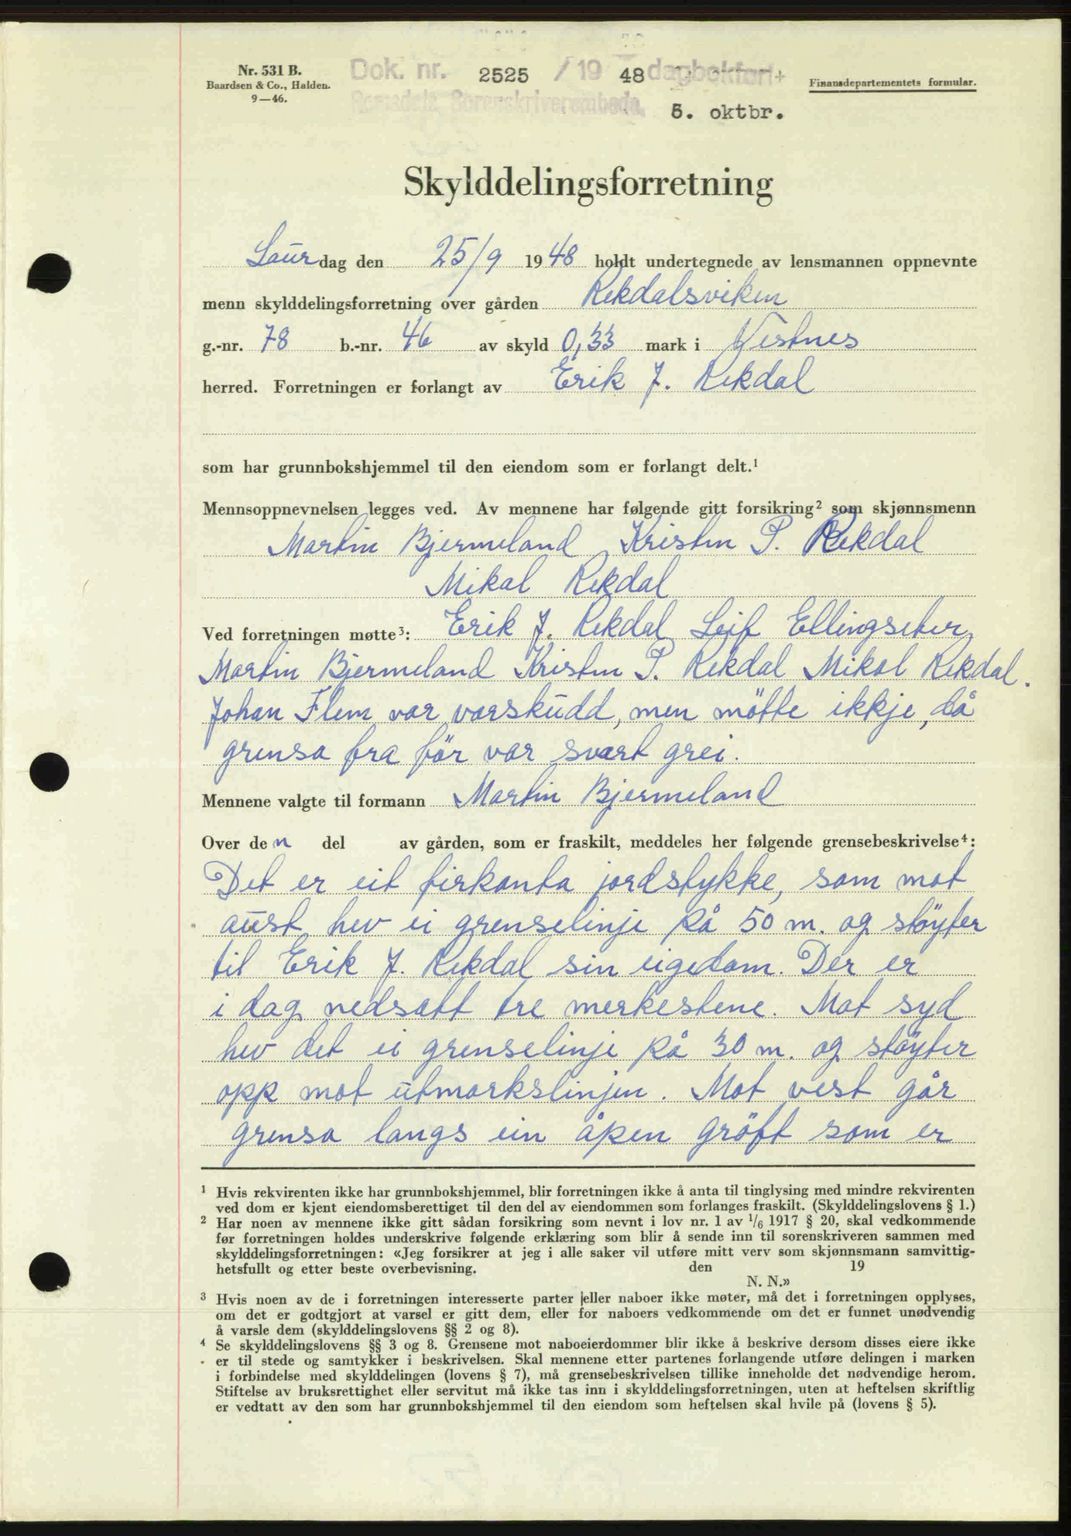 Nr. 531 B.
Baardsen & Co., Halden.
9—46.
Dok. nr. 2525 /19 48 dagbokført
Romsdal Sorenskriverembede. 5. oktbr.
Finansdepartementets formular.
Skylddelingsforretning
Laurdag den 25/9 1948 holdt undertegnede av lensmannen oppnevnte
menn skylddelingsforretning over gården Rekdalsviken
g.-nr. 78 b.-nr. 46 av skyld 0,33 mark i Vestnes
herred. Forretningen er forlangt av Erik J. Rekdal
som har grunnbokshjemmel til den eiendom som er forlangt delt.¹
Mennsoppnevnelsen legges ved. Av mennene har følgende gitt forsikring² som skjønnsmenn
Martin Bjermeland, Kristen P. Rekdal
Mikal Rekdal
Ved forretningen møtte³: Erik J. Rekdal, Leif Ellingseter,
Martin Bjermeland Kristen P. Rekdal Mikal Rekdal.
Johan Flem var varskudd, men møtte ikkje, då
grensa fra før var svært grei.
Mennene valgte til formann Martin Bjermeland
Over den del av gården, som er fraskilt, meddeles her følgende grensebeskrivelse⁴:
Det er eit firkanta jordstykke, som mot
aust hev ei grenselinje på 50 m. og støyter
til Erik J. Rekdal sin eigedom. Der er
i dag nedsatt tre merkestene. Mot syd
hev det ei grenselinje på 30 m. og støyter
opp mot utmarkslinjen. Mot vest går
grensa langs ein åpen grøft som er
¹ Hvis rekvirenten ikke har grunnbokshjemmel, blir forretningen ikke å anta til tinglysing med mindre rekvirenten
ved dom er kjent eiendomsberettiget til den del av eiendommen som forlanges fraskilt. (Skylddelingslovens § 1.)
² Har noen av mennene ikke gitt sådan forsikring som nevnt i lov nr. 1 av 1/6 1917 § 20, skal vedkommende
før forretningen holdes underskrive følgende erklæring som blir å sende inn til sorenskriveren sammen med
skylddelingsforretningen: «Jeg forsikrer at jeg i alle saker vil utføre mitt verv som skjønnsmann samvittig-
hetsfullt og etter beste overbevisning. den 19
N. N.»
³ Hvis noen av de i forretningen interesserte parter eller naboer ikke møter, må det i forretningen opplyses,
om det er godtgjort at varsel er gitt dem, eller for naboers vedkommende om det er funnet unødvendig
å varsle dem (skylddelingslovens §§ 2 og 8).
⁴ Se skylddelingslovens §§ 3 og 8. Grensene mot naboeierdommer blir ikke å beskrive dersom disses eiere ikke
er til stede og samtykker i beskrivelsen. Skal mennene etter partenes forlangende utføre delingen i marken
i forbindelse med skylddelingen (lovens § 7), må grensebeskrivelsen tillike inneholde det nødvendige herom.
Stiftelse av bruksrettighet eller servitut må ikke tas inn i skylddelingsforretningen, uten at heftelsen skriftlig
er vedtatt av den som har grunnbokshjemmel til den eiendom som heftelsen skal hvile på (lovens § 5).